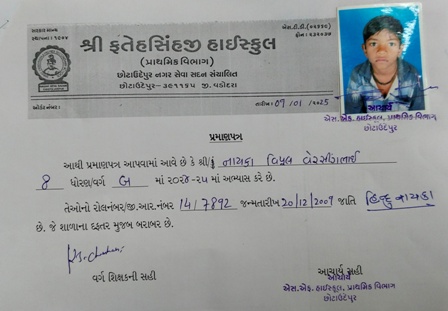 સરકાર માન્ય
સ્થાપના : ૧૯૪૪
એસ.ટી.ડી.(૦૨૬૬૯)
શ્રી ફતેહસિંહજી હાઈસ્કુલ
(પ્રાથમિક વિભાગ)
છોટાઉદેપુર નગર સેવા સદન સંચાલિત
છોટાઉદેપુર-૩૯૧૧૬૫ જી.વડોદરા
તારીખ : 07/01/2025
આચાર્ય
એસ.એફ. હાઈસ્કુલ, પ્રાથમિક વિભાગ
છોટાઉદેપુર
પ્રમાણપત્ર
આથી પ્રમાણપત્ર આપવામાં આવે છે કે શ્રી/કુ નાયકા વિપુલ વેરસીંગભાઈ
8 ધોરણ/વર્ગ બ માં ૨૦૨૪-૨૫ માં અભ્યાસ કરે છે.
તેઓનો રોલનંબર/જી.આર.નંબર 14/7892 જન્મતારીખ 20/12/2009 જાતિ હિન્દુ નાયકા
છે. જે શાળાના દફતર મુજબ બરાબર છે.
વર્ગ શિક્ષકની સહી
આચાર્ય સહી
આચાર્ય
એસ.એફ. હાઈસ્કુલ, પ્રાથમિક વિભાગ
છોટાઉદેપુર